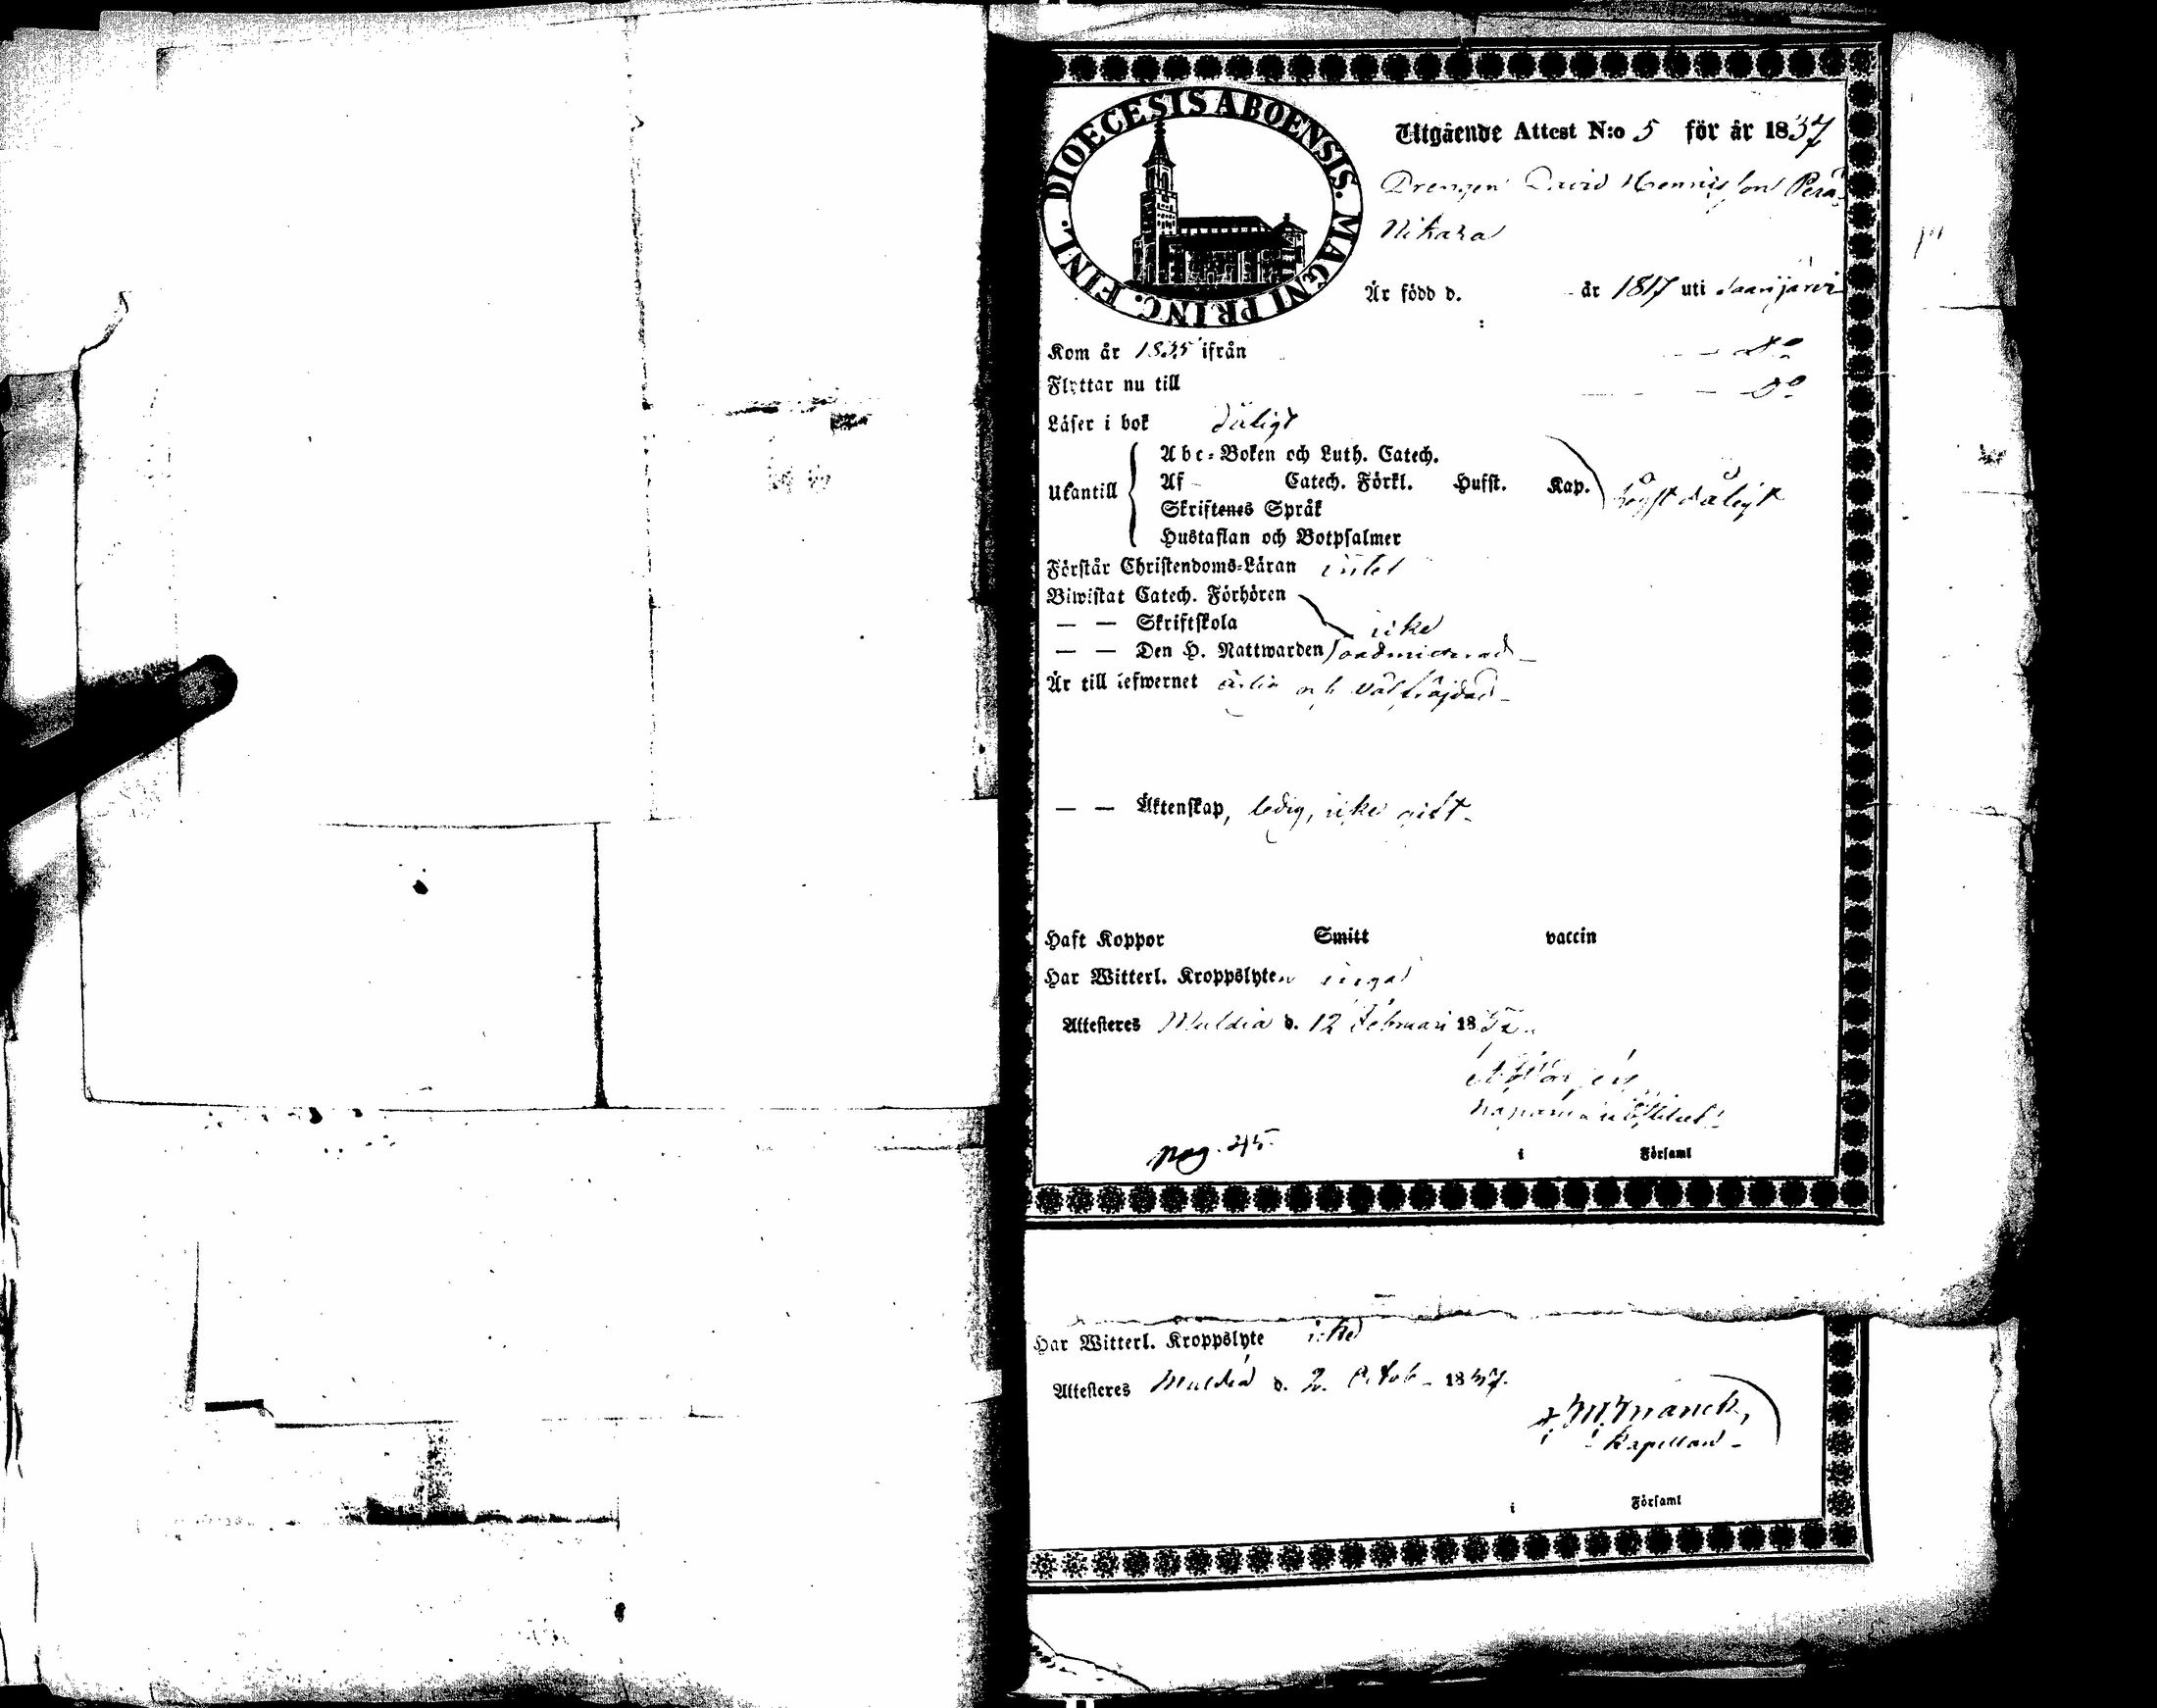 DIOECESIS ABOENSIS. MAGNI PRINC. FINL.
Utgående Attest N:o 5 för år 1837
Drengen David Hennisson Perä
Nikara
Är född d. år 1817 uti Saarijärvi
Kom år 1835 ifrån — — do
Flyttar nu till — — do
Läser i bok dåligt
Utantill
Abc-Boken och Luth. Catech.
Af Catech. Förkl. Hufst. Kap.
högst dåligt
Skriftenes Språk
Hustaflan och Botpsalmer
Förstår Christendoms-Läran intet
Biwistat Catech. Förhören
— — Skriftskola icke
— — Den H. Nattwarden oadmitterad
Är till lefwernet ärlig och välfräjdad
— — Äktenskap, ledig, icke gift
Haft Koppor Smitt vaccin
Har Witterl. Kroppslyten inga
Attesteres Muldia d. 12 Februari 18
pag. 45
i Församl
Har Witterl. Kroppslyte icke
Attesteres Muldia d. 2. Octob 1837.
Franck,
Kapellan
i Församl